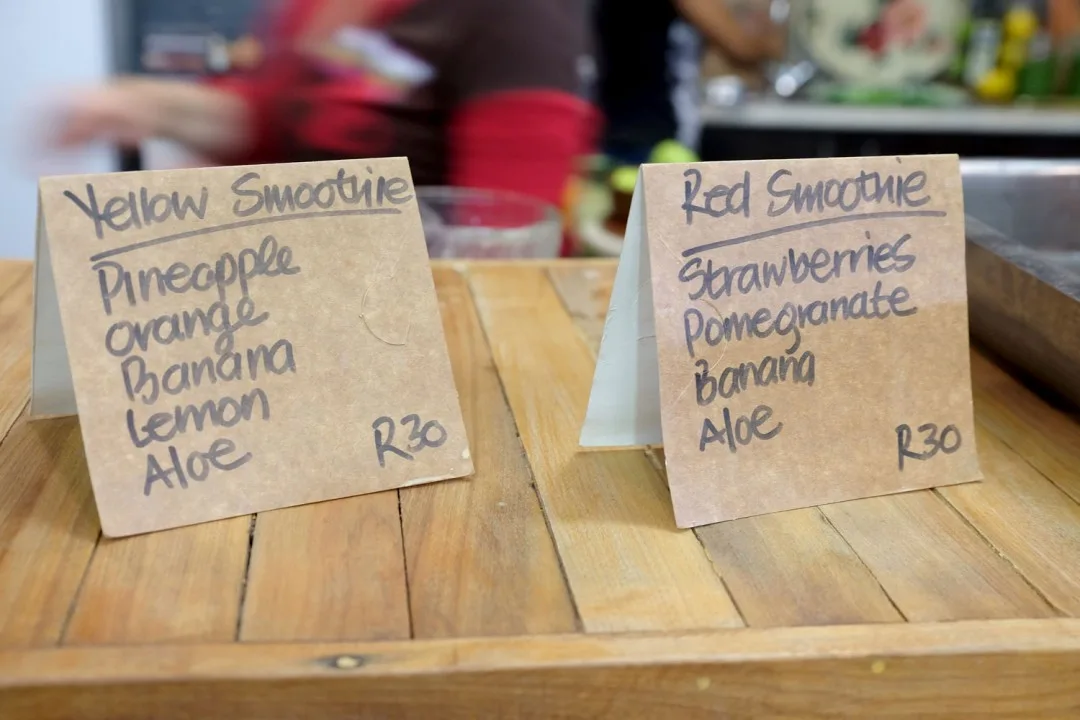 Yellow Smoothie
Pineapple
orange
Banana
Lemon
Aloe
R30
Red Smoothie
Strawberries
Pomegranate
Banana
Aloe
R30